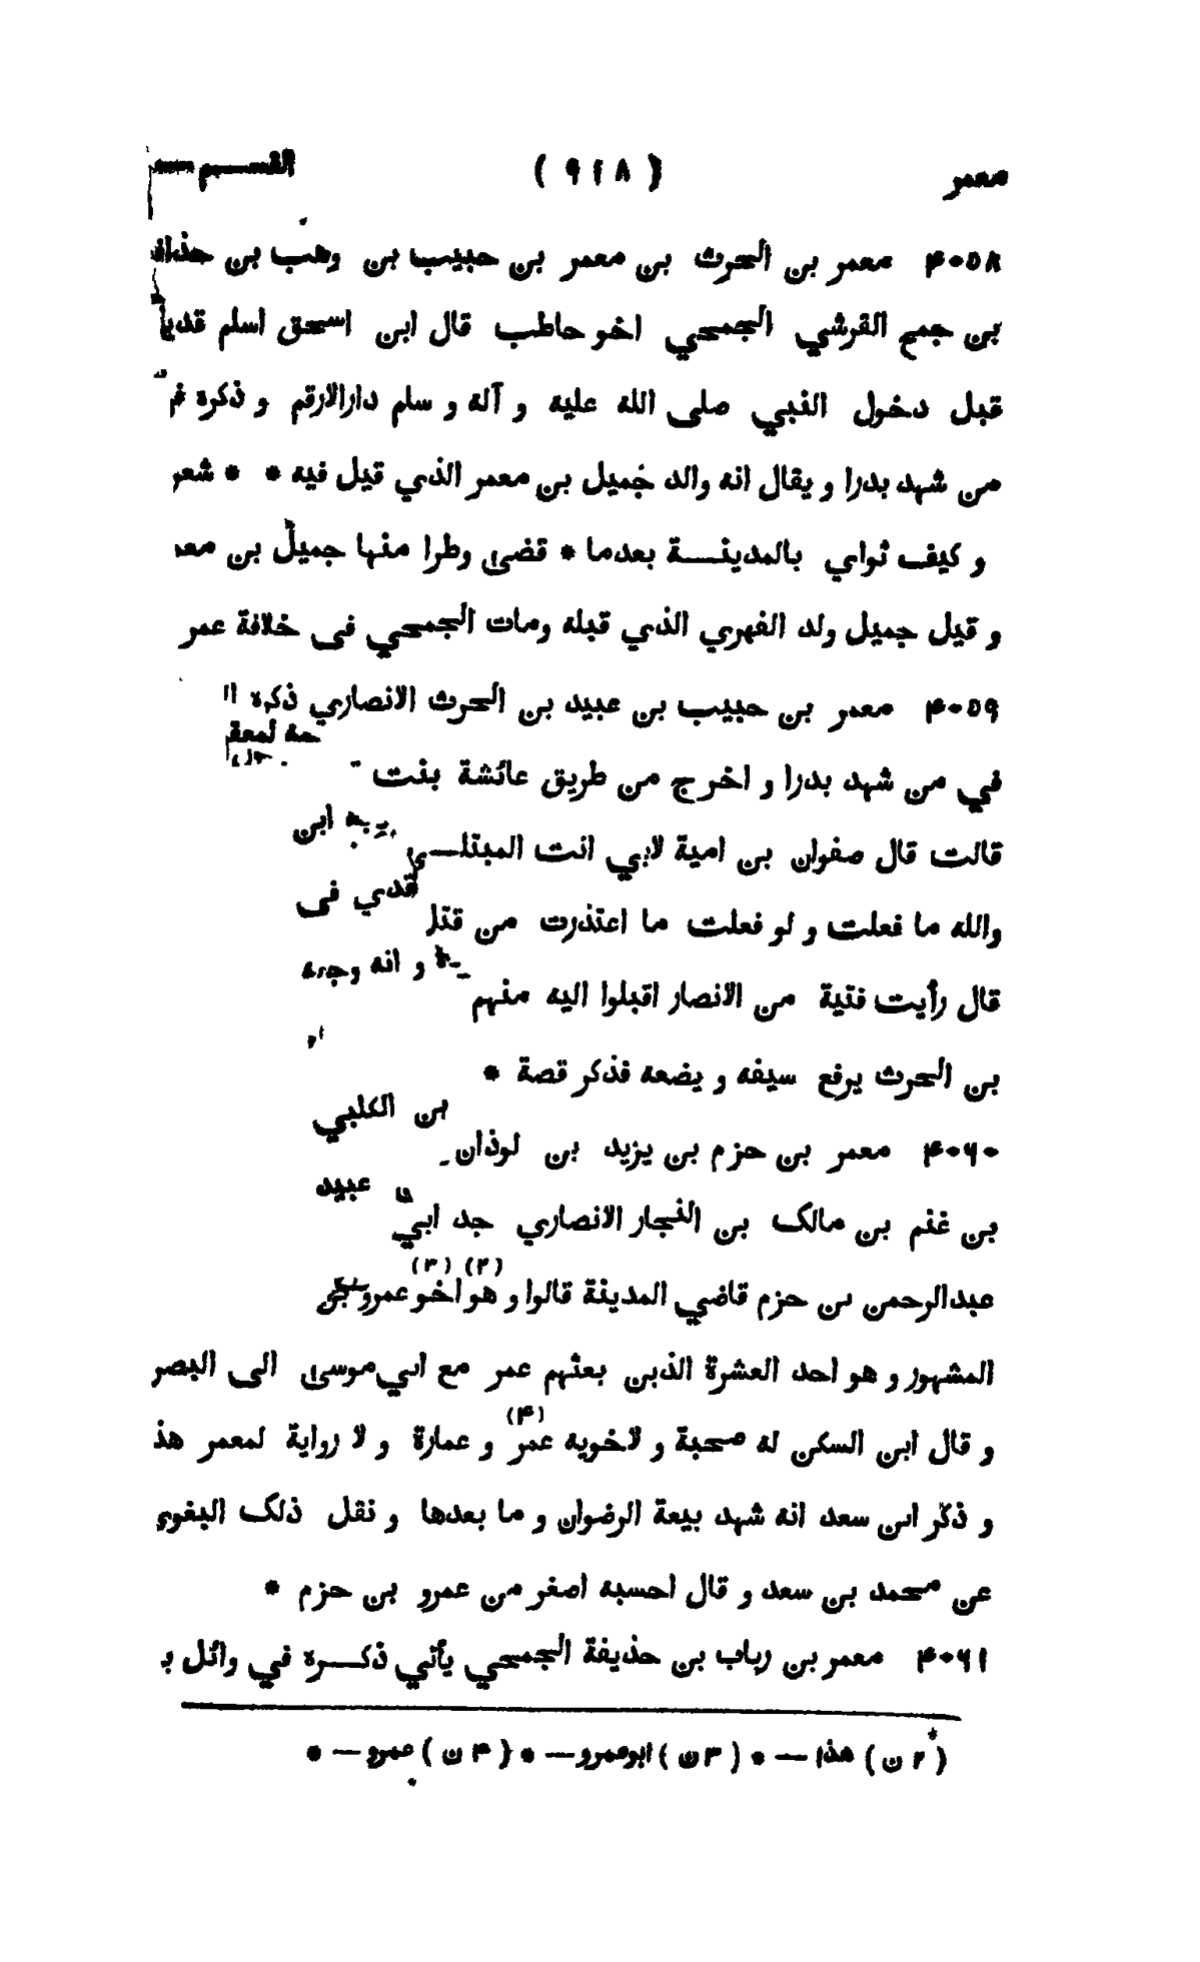 معمر ( ٩١٨ ) القســـم
٤٠٥٨ معمر بن الحرث بن معمر بن حبيب بن وهب بن حذاف
بن جمع القرشي الجمحي اخو حاطب قال ابن اسحق اسلم قديما
قبل دخول النبي صلى الله عليه و آله و سلم دارالارقم و ذكره
من شهد بدرا و يقال انه والد جميل بن معمر الذي قيل فيه * * شعر
و كيف ثواي بالمدينـــة بعدما * قضى وطرا منها جميل بن معمـ
و قيل جميل ولد الفهري الذي قبله ومات الجمحي فى خلافة عمر
٤٠٥٩ معمر بن حبيب بن عبيد بن الحرث الانصاري ذكره
في من شهد بدرا و اخرج من طريق عائشة بنت
قالت قال صفوان بن امية لابي انت المبتلـــي ابن
والله ما فعلت و لو فعلت ما اعتذرت من قتل قدي فى
قال رأيت فتية من الانصار اقبلوا اليه منهم و انه وجهه
بن الحرث يرفع سيفه و يضعه فذكر قصة *
٤٠٦٠ معمر بن حزم بن يزيد بن لوذان بن الكلبي
بن غنم بن مالك بن النجار الانصاري جد ابي عبيد
عبدالرحمن بن حزم قاضي المدينة قالوا و هو (٢) اخو (٣) عمرو بن
المشهور و هو احد العشرة الذين بعثهم عمر مع ابي موسى الى البصر
و قال ابن السكن له صحبة و لاخويه عمر (٤) و عمارة و لا رواية لمعمر هذ
و ذكر ابن سعد انه شهد بيعة الرضوان و ما بعدها و نقل ذلك البغوي
عن محمد بن سعد و قال احسبه اصغر من عمرو بن حزم *
٤٠٦١ معمر بن رباب بن حذيفة الجمحي يأتي ذكـــره في وائل بـ
(٢ ن) هذا — * (٣ ن) ابوعمرو — * (٤ ن) عمرو — *